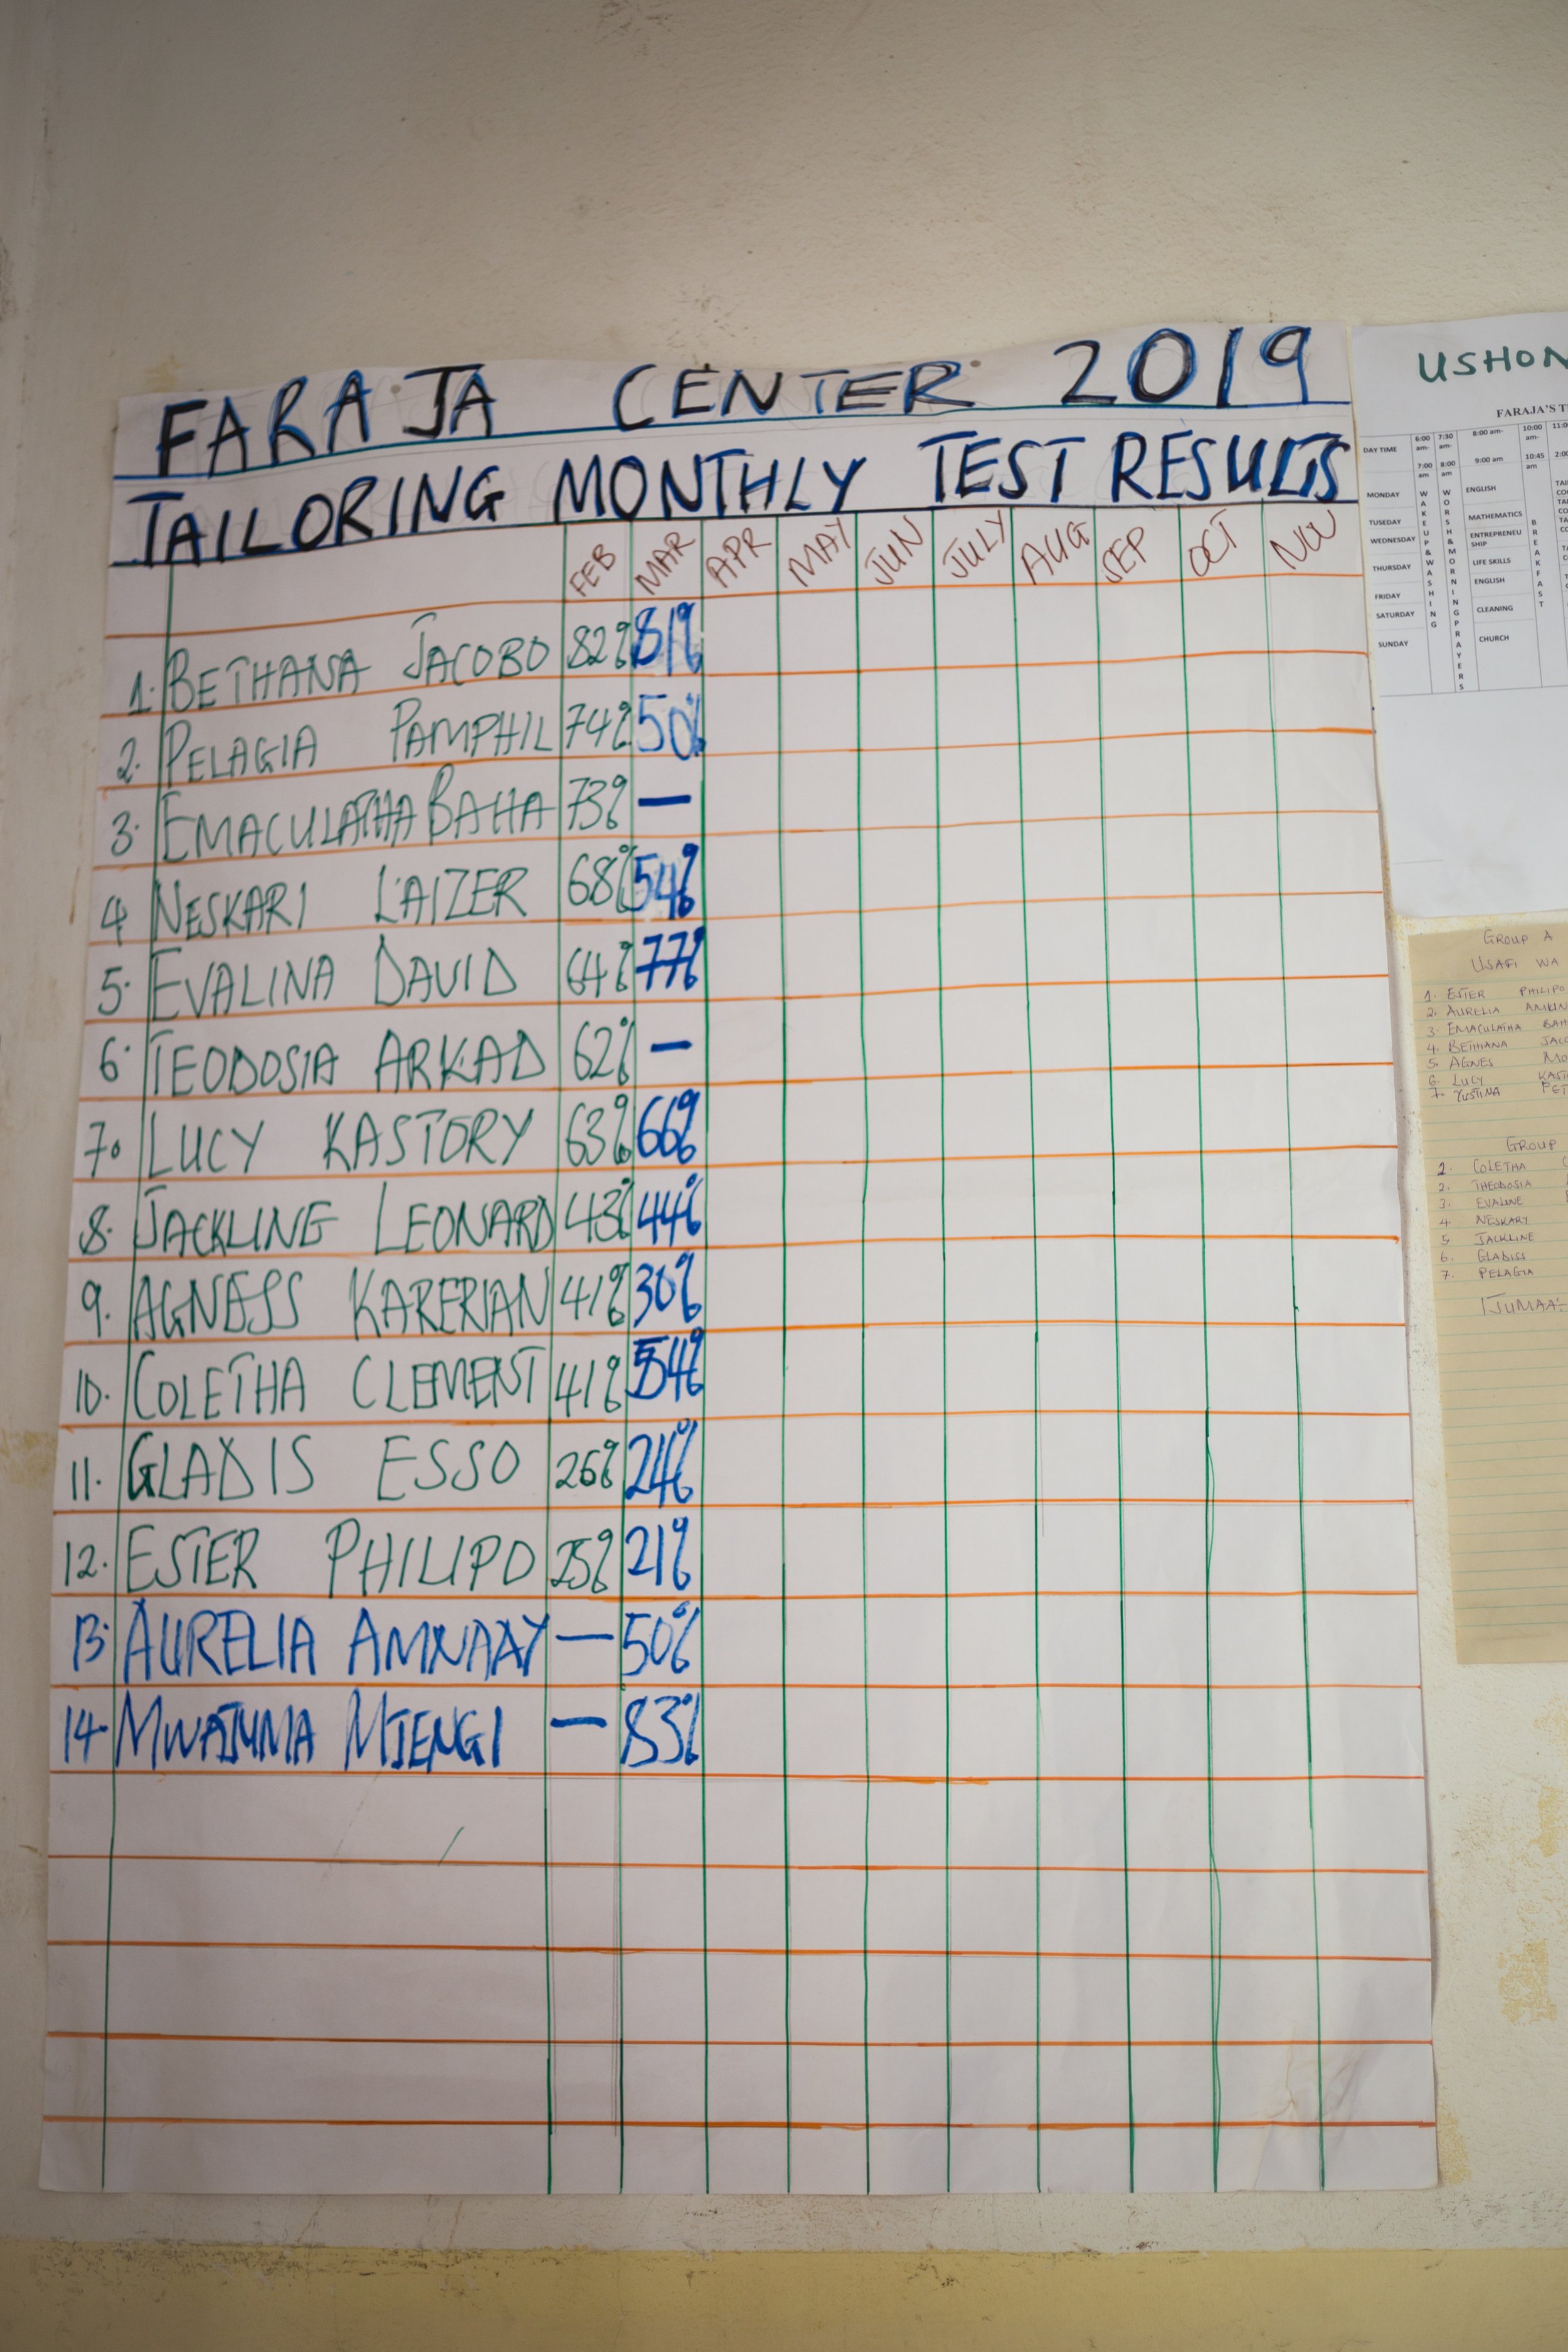 FARAJA CENTER 2019
TAILORING MONTHLY TEST RESULTS
FEB MAR APR MAY JUN JULY AUG SEP OCT NOV
1. BETHANA JACOBO 82% 81%
2. PELAGIA PAMPHIL 74% 50%
3. EMACULATHA BAHA 73% —
4 NESKARI LAIZER 68% 54%
5. EVALINA DAVID 64% 77%
6. TEODOSIA ARKAD 62% —
7. LUCY KASTORY 63% 66%
8. JACKLING LEONARD 43% 44%
9. AGNESS KARERIAN 41% 30%
10. COLETHA CLEMENT 41% 54%
11. GLADIS ESSO 26% 24%
12. ESTER PHILIPO 25% 21%
13. AURELIA AMNAAY — 50%
14. MWAJUMA MJENGI — 83%
USHON
FARAJA'S T
DAY TIME 6:00 am- 7:00 am 7:30 am- 8:00 am 8:00 am- 9:00 am 10:00 am- 10:45 am 11:0 2:00
WAKEUP & WASHING
WORSHIP & MORNING PRAYERS
BREAKFAST
MONDAY ENGLISH
TUSEDAY MATHEMATICS
WEDNESDAY ENTREPRENEU
SHIP
THURSDAY LIFE SKILLS
FRIDAY ENGLISH
SATURDAY CLEANING
SUNDAY CHURCH
GROUP A
USAFI WA
1. ESTER PHILIPO
2. AURELIA
3. EMACULATHA BAH
4. BETHANA JACO
5. AGNES MO
6. LUCY KAST
7. YUSTINA PET
GROUP
1. COLETHA
2. THEODOSIA
3. EVALINE
4. NESKARY
5. JACKLINE
6. GLADISS
7. PELAGIA
IJUMAA: